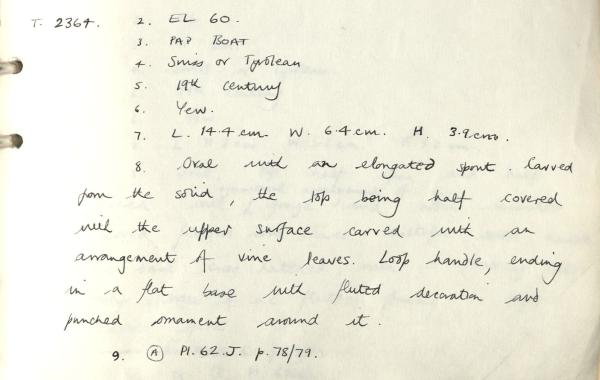 T. 2364. 2. EL 60.
3. PAP BOAT
4. Swiss or Tyrolean
5. 19th century
6. Yew.
7. L. 14.4 cm. W. 6.4 cm. H. 3.9 cm.
8. Oval with an elongated spout. Carved
from the solid, the top being half covered
with the upper surface carved with an
arrangement of vine leaves. Loop handle, ending
in a flat base with fluted decoration and
punched ornament around it.
9. (A) Pl. 62.J. p. 78/79.